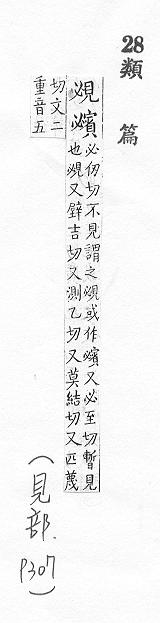 28
類篇
覕䚔
必仞切不見謂之覕或作䚔又必至切暫見
也覕又壁吉切又測乙切又莫結切又匹蔑
切文二
重音五
(見部. P307)